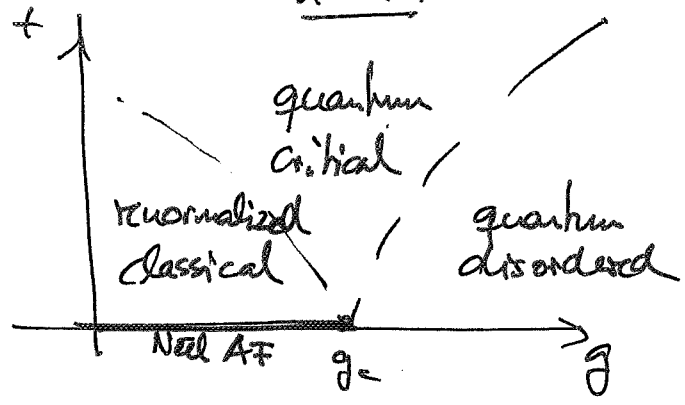 t
quantum
critical
renormalized
classical
quantum
disordered
Néel AF
g_c
g